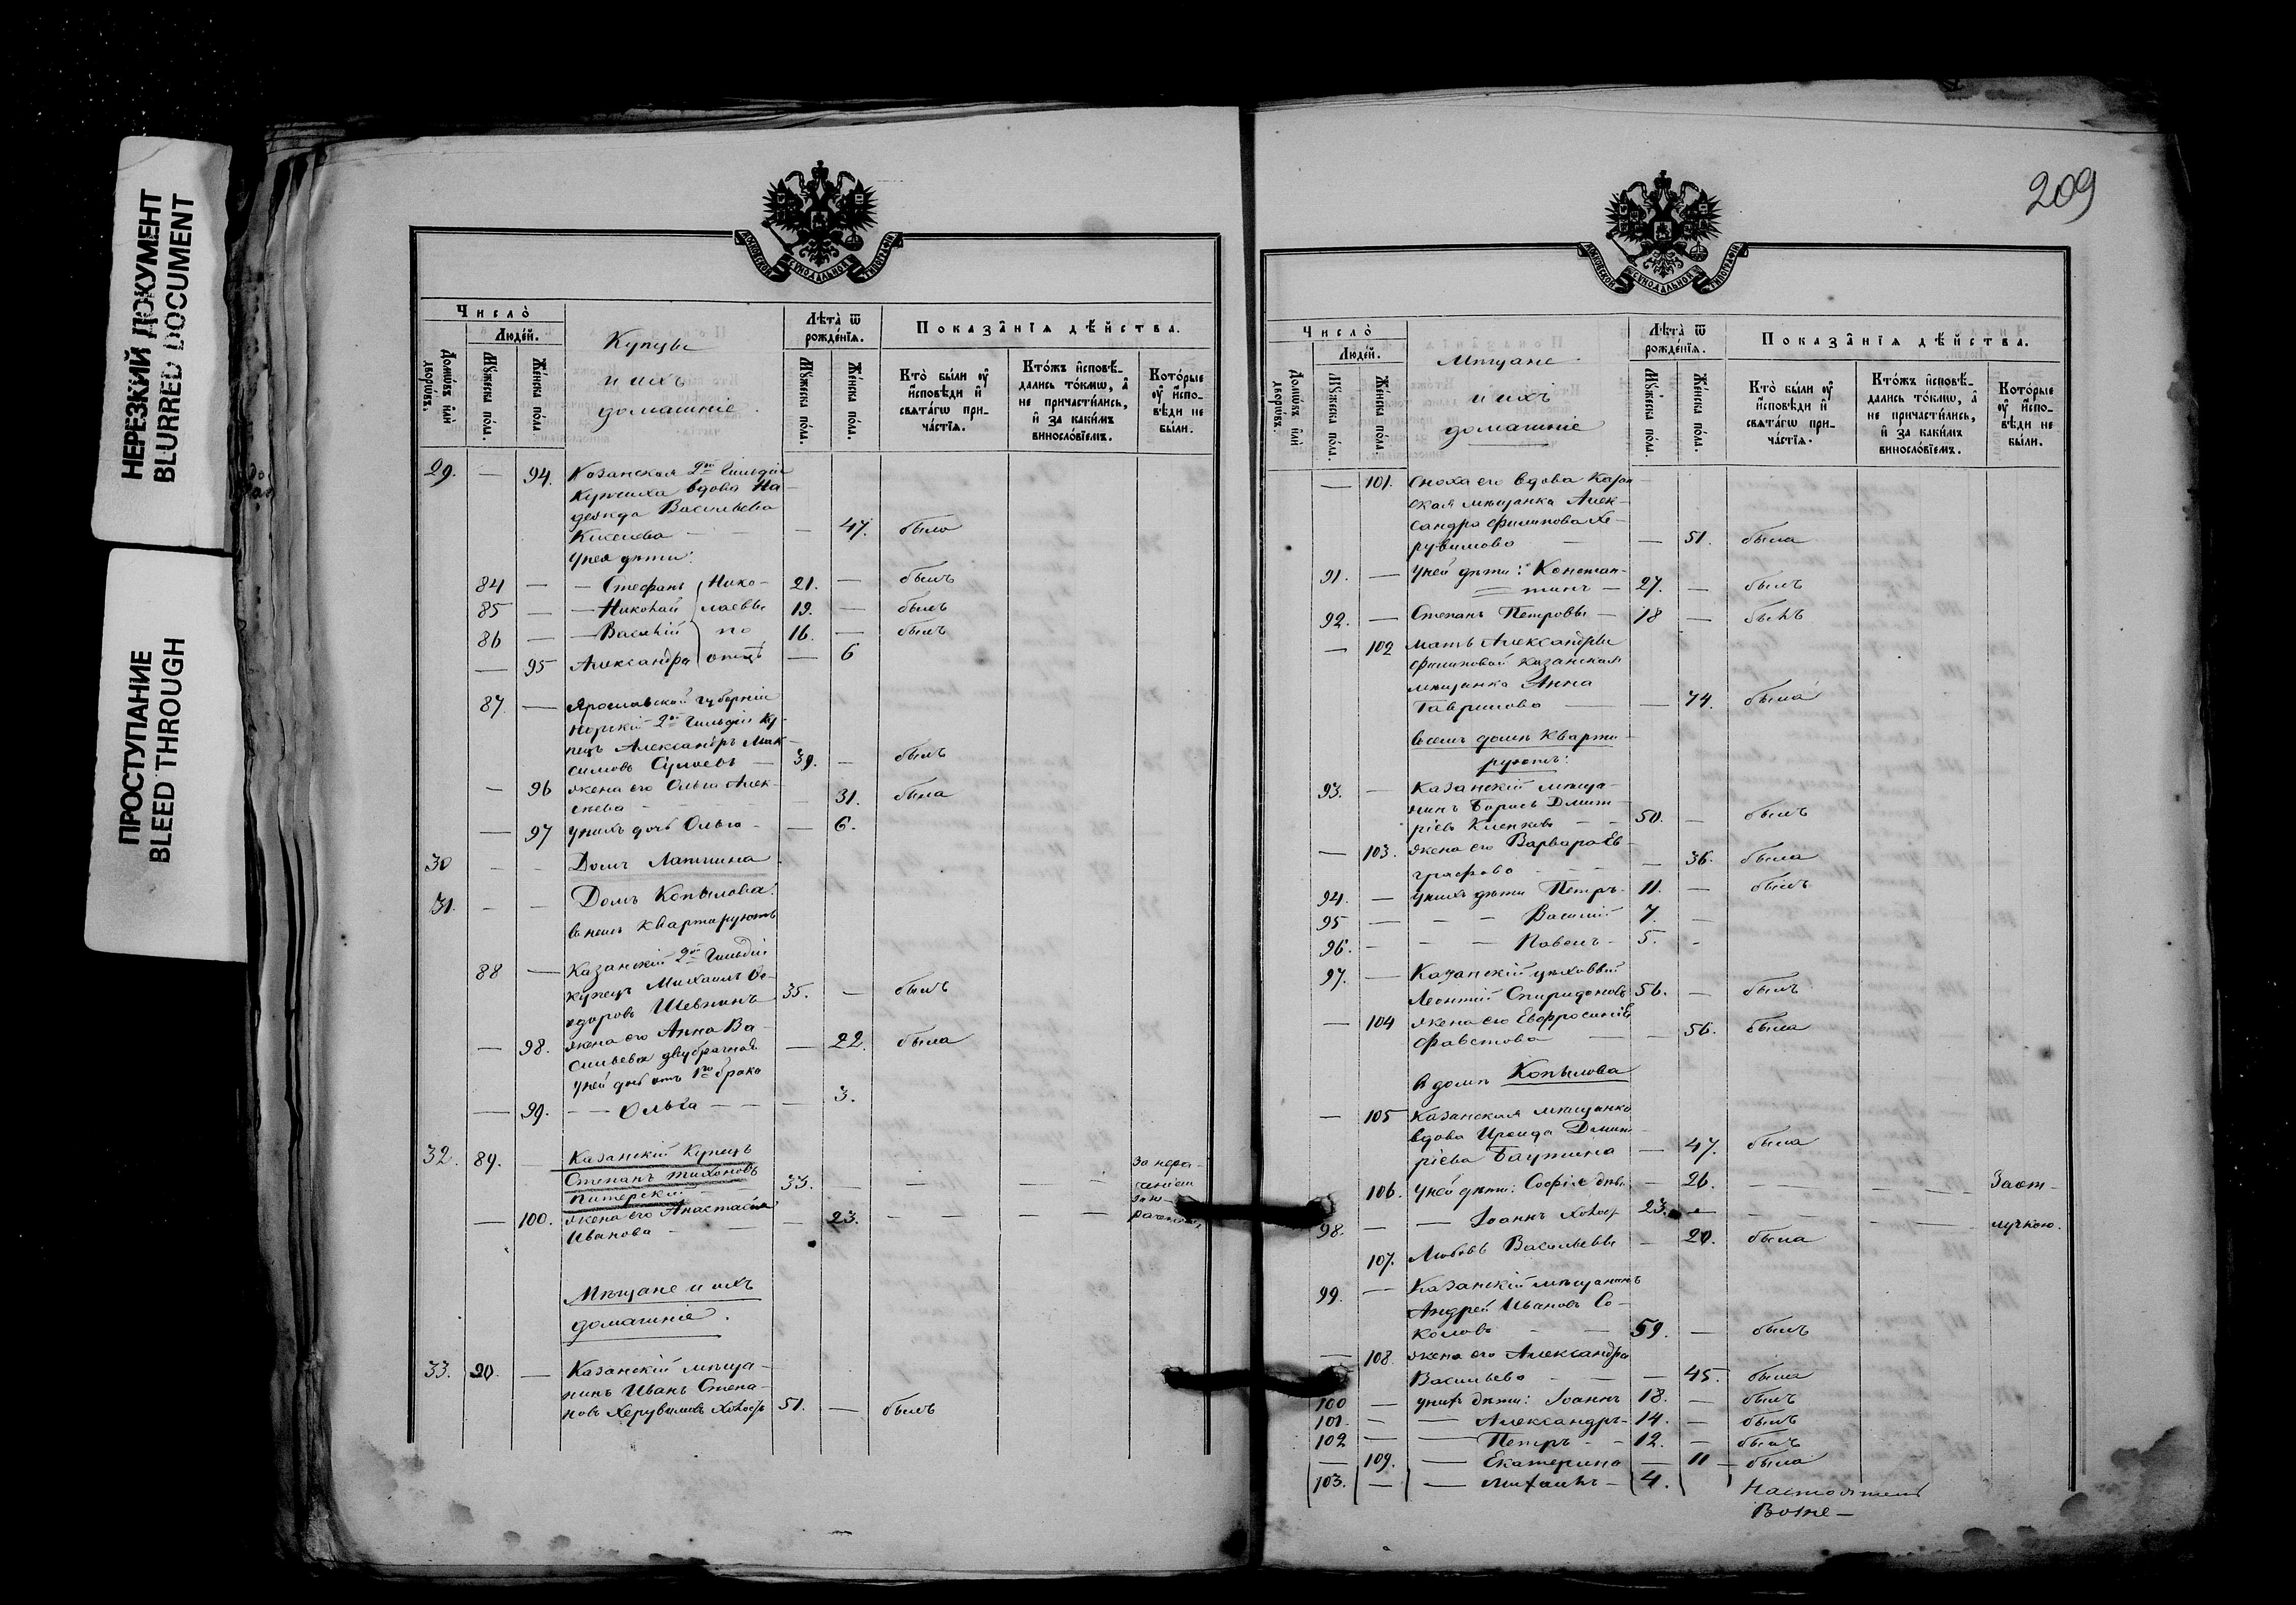 НЕРЕЗКИЙ ДОКУМЕНТ
BLURRED DOCUMENT
ПРОСТУПАНИЕ
BLEED THROUGH
МОСКОВСКОЙ СѴНОДАЛЬНОЙ ТИПОГРАФІИ
Число̀
Людéй.
Домѡ́въ и҆лѝ дворѡ́въ.
Мꙋ́жеска по́ла.
Же́нска по́ла.
Купцы
и ихъ
домашніе.
Лѣ́та ѿ рожде́нїѧ.
Мꙋ́жеска по́ла.
Же́нска по́ла.
Показа̑нїѧ дѣ́йства.
Кто̀ бы́ли ᲂу҆ и҆спо́вѣди и҆ свѧта́гѡ причáстїѧ.
Кто́жъ и҆сповѣ́дались то́кмѡ, а҆ не причасти́лись, и҆ за каки́мъ винослóвїемъ.
Кото́рые ᲂу҆ и҆спо́вѣди не бы́ли.
29. — 94. Казанская 2й Гильдіи
Купчиха вдова На-
дежда Васильева
Киселева — 47. была
У нея дѣти:
84 — Стефанъ Нико- 21. — былъ
85 — Николай лаевы 19. — былъ
86 — Василій по 16. — былъ
— 95 Александра отцѣ — 6
87. — Ярославской губерніи
2й Гильдіи Ку-
пецъ Александръ Мак-
симовъ 39. — былъ
— 96 жена его Ольга Алек-
сѣева 31. была
— 97 у нихъ дочь Ольга — 6.
30 — — Домъ Лапшина
31. — — Домъ Копылова.
в немъ квартируютъ
88 — Казанскій 2й Гильдіи
купецъ Михаилъ Ѳе-
одоровъ 35. — былъ
— 98. жена его Анна Ва-
сильева двубрачная — 22. была
у ней дочь отъ 1го брака
— 99. — Ольга — — 3.
32. 89. — Казанскій Купецъ
Степанъ Тихоновъ
Питерскій 33. — — — За нера-
— 100. жена его Анастасія — 23. — — —
Иванова
Мѣщане и ихъ
домашніе.
33. 90. — Казанскій мѣща-
нинъ Иванъ Степа-
новъ Херувимовъ холостъ 51. — былъ
209
МОСКОВСКОЙ СѴНОДАЛЬНОЙ ТИПОГРАФІИ
Число̀
Людéй.
Домѡ́въ и҆лѝ дворѡ́въ.
Мꙋ́жеска по́ла.
Же́нска по́ла.
Мѣщане
и ихъ
домашніе
Лѣ́та ѿ рожде́нїѧ.
Мꙋ́жеска по́ла.
Же́нска по́ла.
Показа̑нїѧ дѣ́йства.
Кто̀ бы́ли ᲂу҆ и҆спо́вѣди и҆ свѧта́гѡ причáстїѧ.
Кто́жъ и҆сповѣ́дались то́кмѡ, а҆ не причасти́лись, и҆ за каки́мъ винослóвїемъ.
Кото́рые ᲂу҆ и҆спо́вѣди не бы́ли.
— 101. Сноха его вдова Казан
ская мѣщанка Алек-
сандра Филипова Хе-
рувимова — 51. была
91. — У ней дѣти: Констан-
тинъ — 27. — былъ
92. — Степанъ Петровы — 18 — былъ
— 102 Мать Александры
Филиповой Казанская
мѣщанка Анна
Гаврилова — 74. была
в семъ домѣ кварти-
руютъ:
93. — Казанскій мѣща-
нинъ Борисъ Дмит-
ріевъ 50. — былъ
— 103. жена его Варвара Ев-
графова — 36. была
94. — у нихъ дѣти Петръ 11. — былъ
95 — — Василій 7. —
96. — — Павелъ 5. —
97. — Казанскій цѣховый
Леонтій Спиридоновъ 56. — былъ
— 104 жена его Евфросинія
Фавстова — 56. была
В домѣ Копылова
— 105 Казанская мѣщанка
вдова Ираида Дмит-
ріева — 47. была
106. У ней дѣти: Софія дѣв. — 26. — — Заот-
98. — Іоаннъ холост 23. — — — лучкою.
107. Любовь Васильевы — 20. была
99. — Казанскій мѣщанинъ
Андрей Ивановъ Со-
коловъ 59. — былъ
— 108. жена его Александра
Васильева — 45. была
100 — у нихъ дѣти: Іоаннъ 18. — былъ
101. — Александръ 14. — былъ
102 — Петръ — 12. — былъ
— 109. — Екатерина — 11 — была
103. — — Михаилъ — 4.